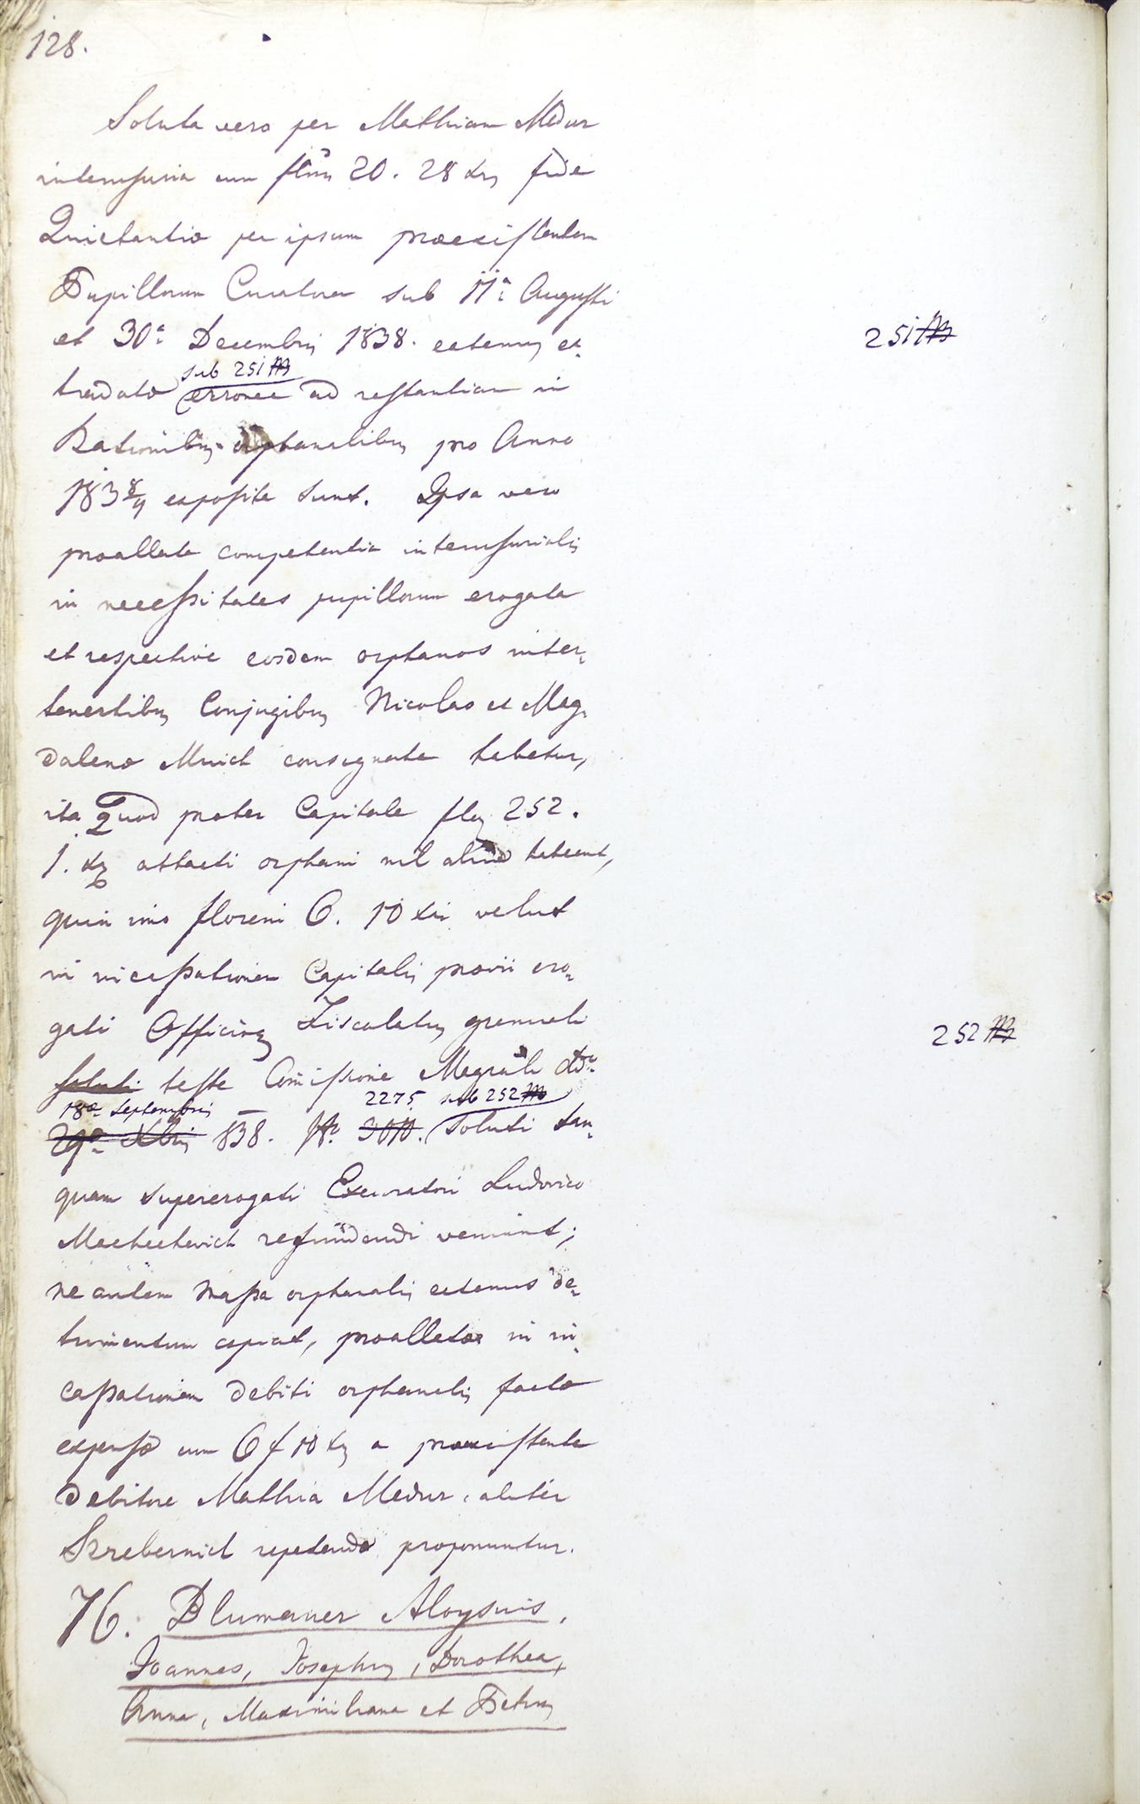 128.
Soluta vero per Mathiam Medur
interusuria cum flnis 20. 28 xris fide
Quietantiæ per ipsum præexistentem
Pupillorum Curatorem sub 11a Augusti
et 30a Decembris 1838. eatenus ex-
251
sub 251
tradatæ erronee ad restantiam in
Rationibus orphanalibus pro Anno
1838/9 exposita sunt. Ipsa vero
proallata competentia interusurialis
in necessitates pupillorum erogata
et respective eosdem orphanos inter-
tenentibus Conjugibus Nicolao et Mag-
dalenæ Munich consignata habetur,
ita quod præter Capitale flis 252.
1. xr attacti orphani nil aliud habeant,
quin imo floreni 6. 10 xri velut
in incassationem Capitalis prævii ero-
gati Officiinus Fiscalatus gremiali
252
soluti teste Comissione Magrali ddo
18a Septembris 2275. sub 252
29a Xbris 838. No soluti tan-
quam supererogati Excuratori Ludovico
refundendi veniunt;
ne autem massa orphanalis eatenus de-
trimentum capiat, proallatæ in in-
cassationem debiti orphanalis factæ
expensæ cum 6 f 10 xris a præexistente
debitore Mathia Medur, aliter
Szrebernich repetendæ proponuntur.
76. Blumauer Aloysius,
Joannes, Josephus, Dorothea,
Anna, Maximiliana et Petrus